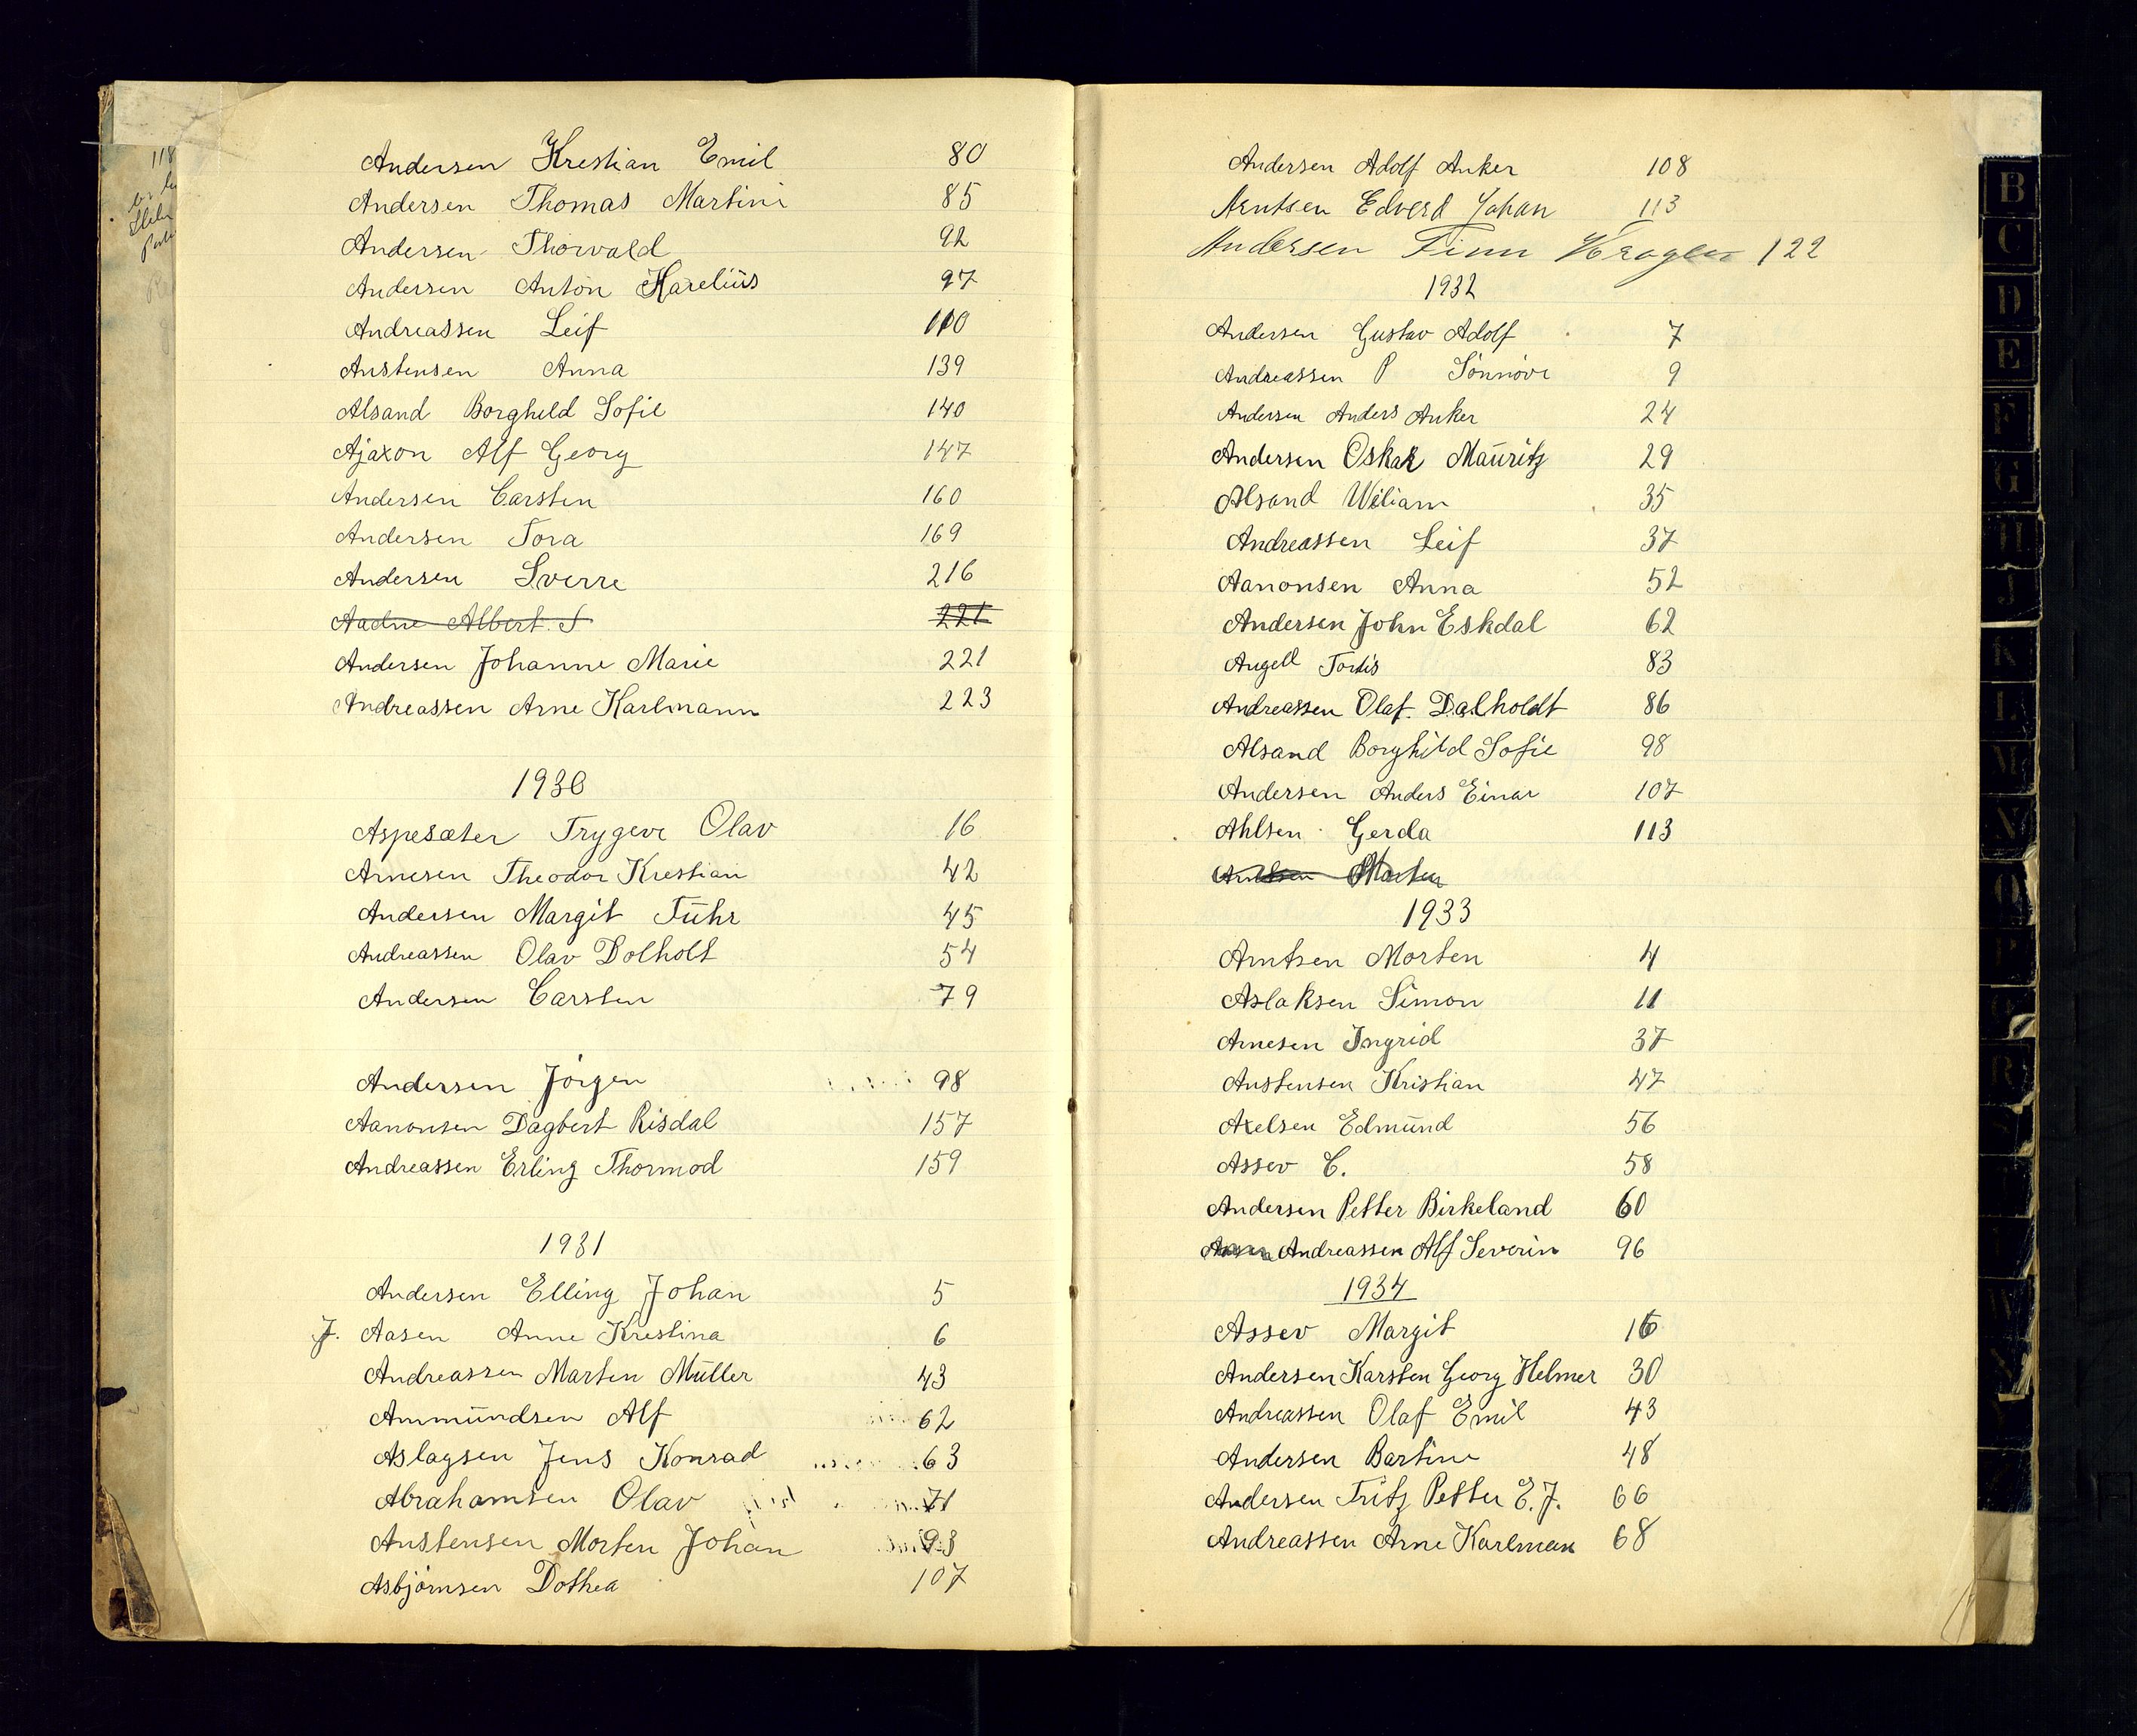 Andersen Krestian Emil 80
Andersen Thomas Martini 85
Andersen Thorvald 92
Andersen Anton Karelius 97
Andreassen Leif 110
Austensen Anna 139
Alsand Borghild Sofie 140
Ajaxon Alf Georg 147
Andersen Carsten 160
Andersen Tora 169
Andersen Sverre 216
Aadne Albert S 221
Andersen Johanne Marie 221
Andreassen Arne Karlmann 223
1930
Aspesæter Trygeve Olav 16
Arnesen Theodor Krestian 42
Andersen Margit Fuhr 45
Andreassen Olav Dolholt 54
Andersen Carsten 79
Andersen Jörgen 98
Aanonsen Dagbert Risdal 157
Andreassen Erling Thormod 159
1931
Andersen Elling Johan 5
J. Aasen Anne Krestina 6
Andreassen Marten Müller 43
Ammundsen Alf 62
Aslagsen Jens Konrad 63
Abrahamsen Olav 71
Austensen Morten Johan 93
Asbjørnsen Dothea 107
Andersen Adolf Anker 108
Arntsen Edverd Johan 113
Andersen Finn 122
1932
Andersen Gustav Adolf 7
Andreassen P Sønnøve 9
Andersen Anders Anker 24
Andersen Oskar Mauritz 29
Alsand Wiliam 35
Andreassen Leif 37
Aanonsen Anna 52
Andersen John Eskdal 62
Angell Tordis 83
Andreassen Olaf. Dalholdt 86
Alsand Borghild Sofie 98
Andersen Anders Einar 107
Ahlsen Gerda 113
Arntsen Morten
1933
Arntsen Morten 4
Aslaksen Simon 11
Arnesen Ingrid 37
Austensen Kristian 47
Axelsen Edmund 56
Assev C. 58
Andersen Petter Birkeland 60
Andreassen Alf Severin 96
1934
Assev Margit 16
Andersen Karsten Georg Helmer 30
Andreassen Olaf Emil 43
Andersen Bartine 48
Andersen Fritz Petter E. J. 66
Andreassen Arne Karlman 68
118
B
C
D
E
F
G
H
J
K
L
M
N
O
R